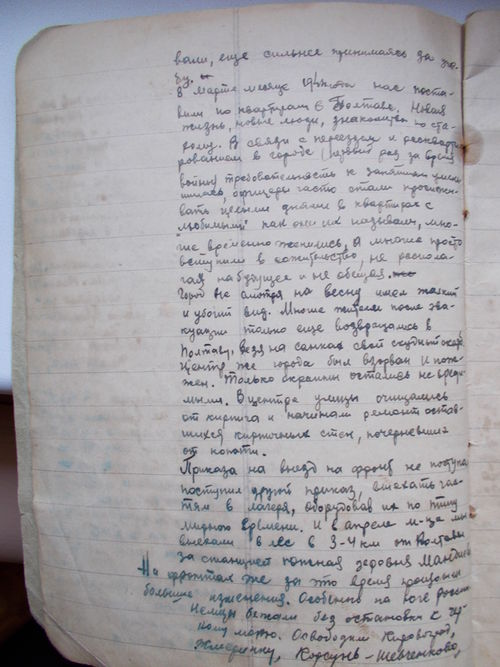 вали, еще сильнее принимаясь за уче-
бу.
В марте месяце 1944 года нас поста-
вили по квартирам в Полтаве. Новая
жизнь, новые люди, знакомства по ста-
рому. В связи с переездом и расквартир-
рованием в городе (первый раз за время
войны) требовательность к занятиям умень-
шилась, офицеры часто стали просижи-
вать целыми днями в квартирах с
"любимыми" как они их называли, мно-
гие временно женились, а многие просто
вступили в сожительство, не распола-
гая на будущее и не обещая.
Город не смотря на весну имел жалкий
и убогий вид. Многие жители после эва-
куации только еще возвращались в
Полтаву, везя на санках свой скудный скарб.
Центр же города был взорван и сож-
жен. Только окраины остались не вреди-
мыми. В центре улицы очищались
от кирпича и начинали ремонт остав-
шихся кирпичных стен, почерневших
от копоти.
Приказа на выезд на фронт не поступа
поступил другой приказ, выехать час-
тям в лагеря, оборудовав их по типу
мирного времени. И в апреле м-це мы
выехали в лес в 3-4 км от Полтавы
за станцией Южная
На фронтах же за это время произошли
большие изменения. Особенно на юге
Немцы бежали без остановки к Чер-
ному морю. Освободили Кировоград,
Жмеринку, Корсунь-Шевченково,